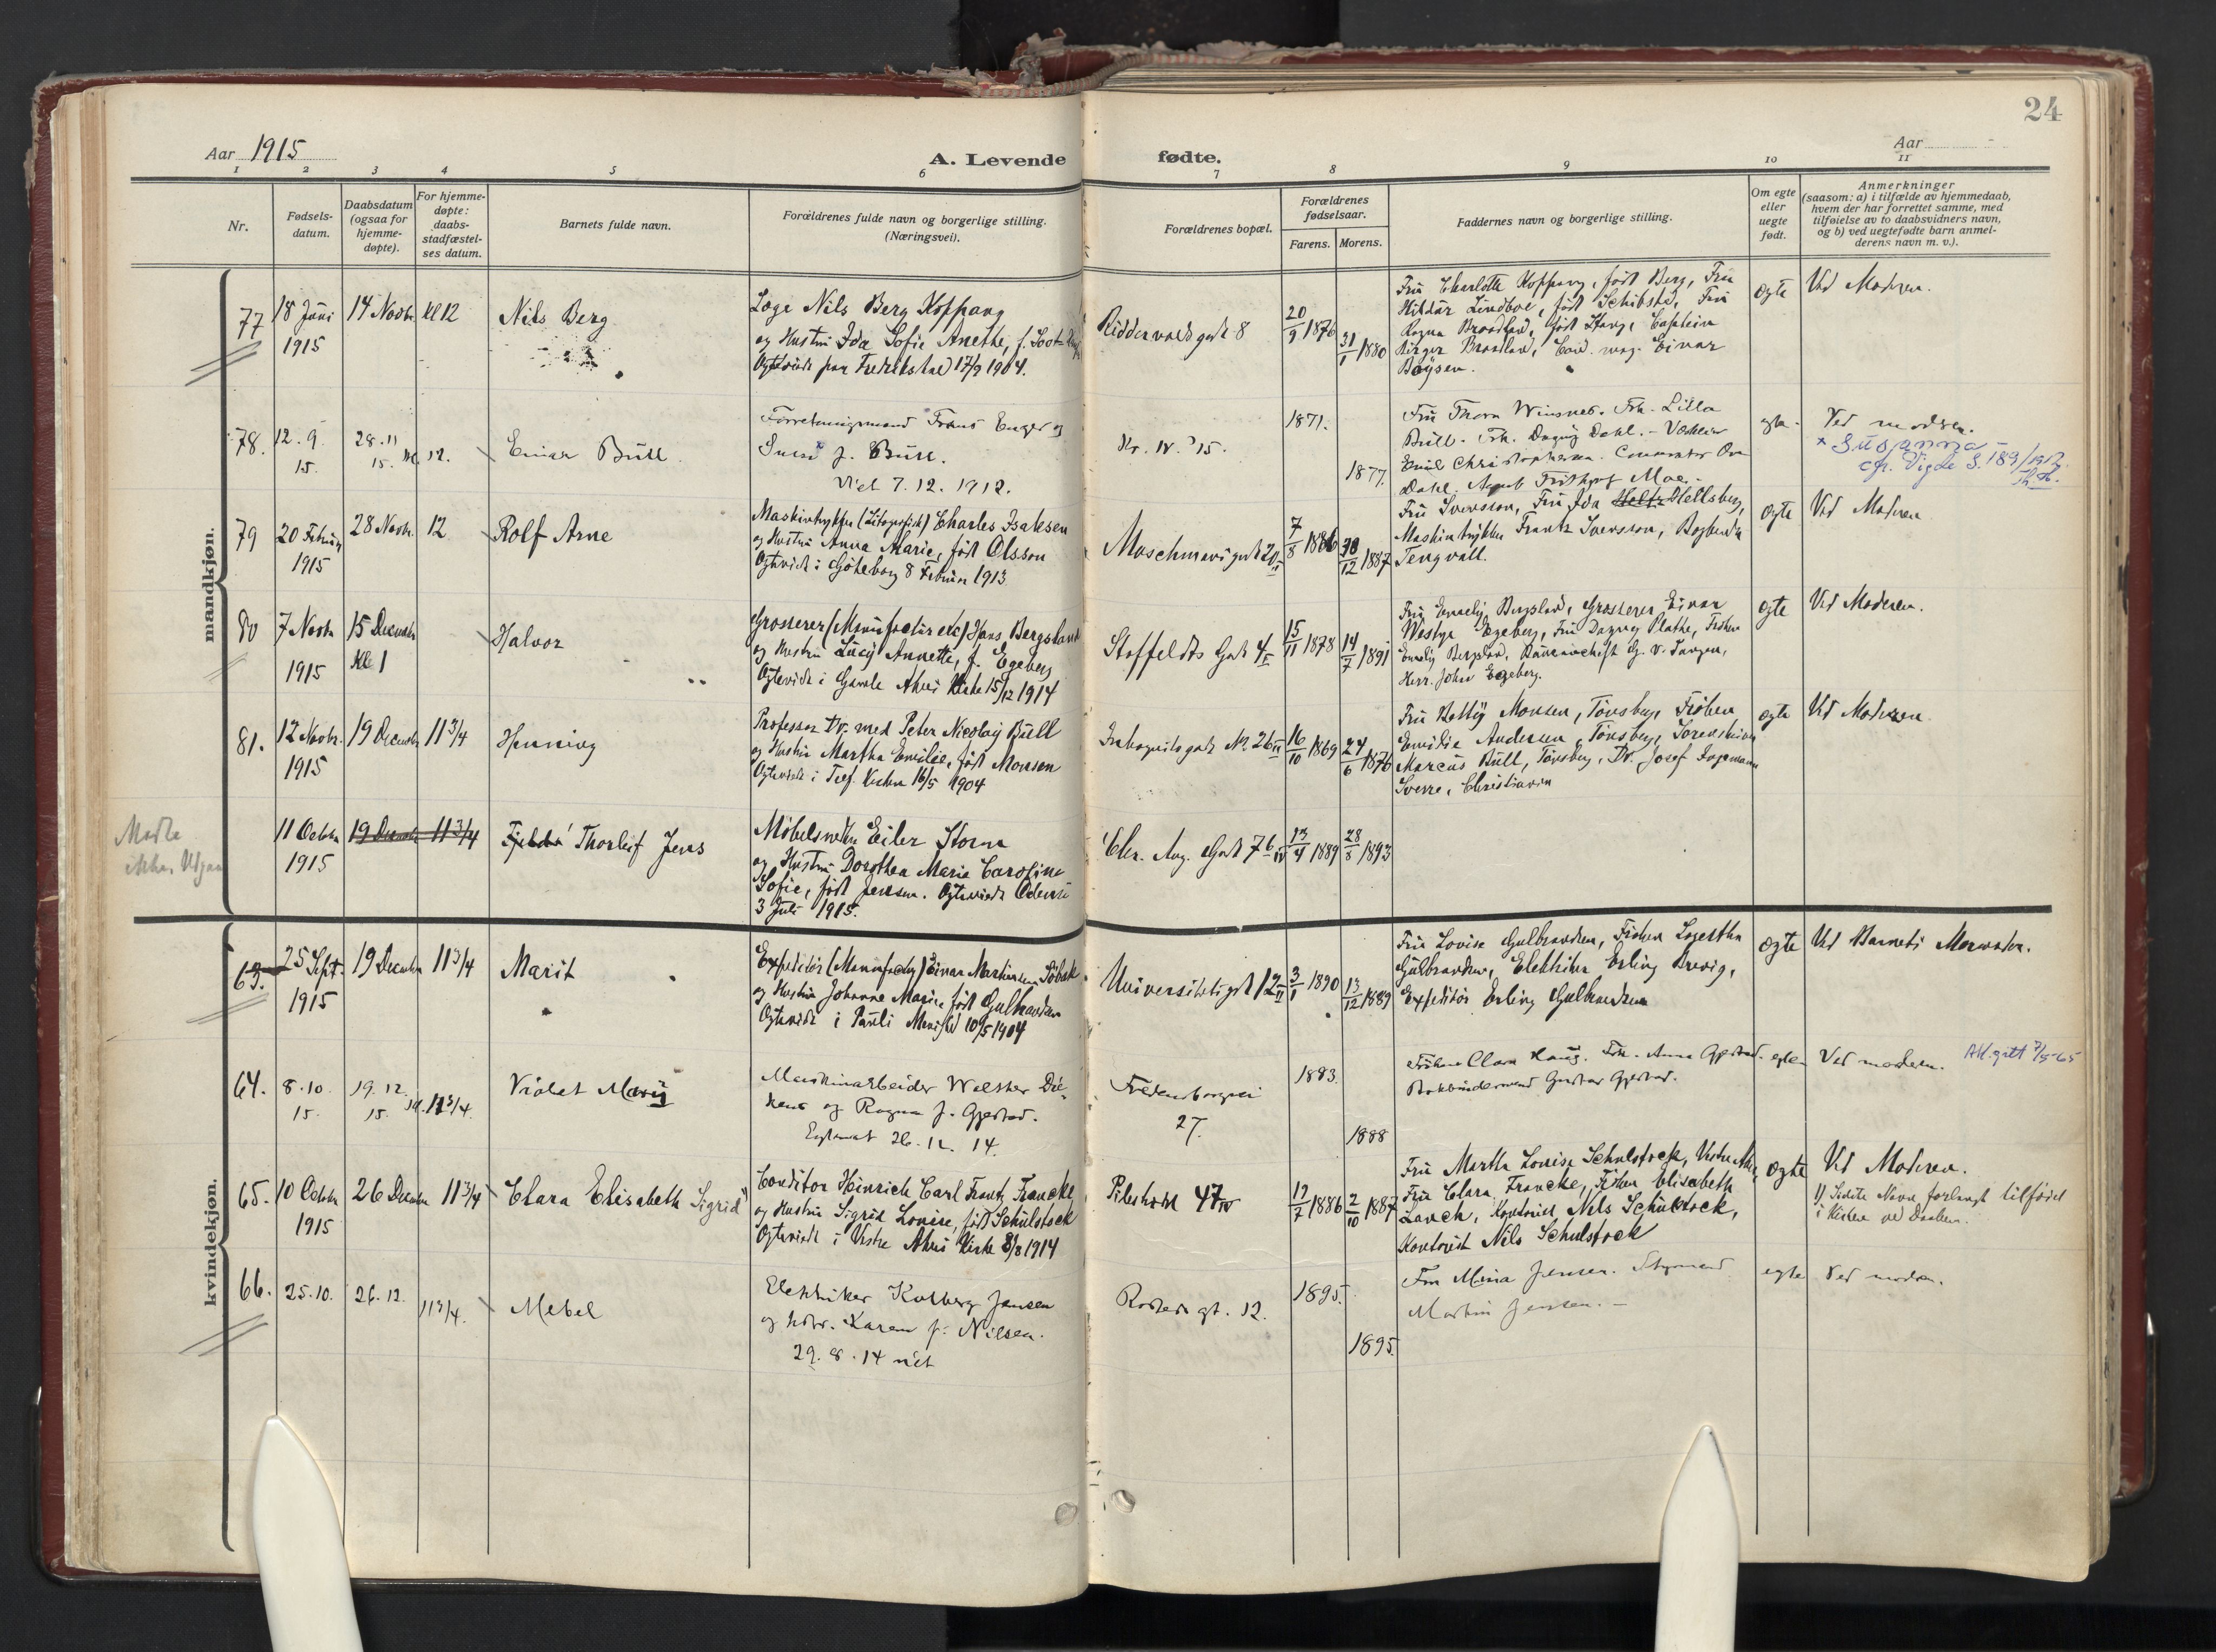 24
Aar 1915
A. Levende
fødte.
Aar
1 2 3 4 5 6 7 8 9 10 11
Nr.
Fødsels-
datum.
Daabsdatum
(ogsaa for
hjemme-
døpte).
For hjemme-
døpte:
daabs-
stadfæstel-
ses datum.
Barnets fulde navn.
Forældrenes fulde navn og borgerlige stilling.
(Næringsvei).
Forældrenes bopæl.
Forældrenes
fødselsaar.
Farens. Morens.
Faddernes navn og borgerlige stilling.
Om egte
eller
uegte
født.
Anmerkninger
(saasom: a) i tilfælde av hjemmedaab,
hvem der har forrettet samme, med
tilføielse av to daabsvidners navn,
og b) ved uegtefødte barn anmel-
derens navn m. v.).
mandkjøn.
77
18 Juni
1915
14 Novbr.
kl 12
Nils Berg
Læge Nils Berg Koppang
og Hustru Ida Sofie Anethe, f.
Ogteviede paa Fredrikstad 17/9 1904.
Riddervoldsgade 8
20/9 1876
31/1 1880
Fru Charlotte Koppang, født Berg, Fru
Hildur Lindboe, født Schibsted, Fru
Ragna Braadland, født Stang, Captein
Birger Braadland, Cand. mag. Einar
Bøysen.
ogte
Ved Moderen.
78.
12. 9.
15.
28. 11
15. kl. 12.
Einar Bull
Forretningsmand Frans Enger og
f. Bull.
Viet 7. 12. 1912.
Kr. IV. 15.
1871.
1877.
Fru Thora Winsnes. Frk. Lilla
Bull. Frk. Dagny Dahl. -
Emil Christophersen.
Dahl. Agent Frithjof Moe. -
egte.
Ved moderen.
+ Susanna
cfr. Vigde S. 189/1912
79
20 Februar
1915
28 Novbr.
12
Rolf Arne
Maskintrykker (Litografisk) Charles Isaksen
og Hustru Anna Marie, født Olsson
Ogteviede i Göteborg 8 Februar 1913
7/8 1886
/12 1887
Fru Svensson, Fru Ida Hellsberg,
Maskintrykker Frantz Svensson, Bogbinder
Tengvall.
ogte
Ved Moderen
80
7 Novbr
1915
15 December
Kl 1
Halvor
Grosserer (Manufactur etc) Hans Bergsland
og Hustru Lucy Annette, f. Egeberg
Ogteviede i Gamle Akers Kirke 15/12 1914
Stoffeldts Gade 4 II
15/11 1878
14/7 1891
Fru Emely Bergsland, Grosserer Einar
Westye Egeberg, Fru Dagny Plathe, Frøken
Emely Bergsland, Bureauchef G. v. Tangen,
Herr. John Egeberg.
ogte
Ved Moderen.
81.
12 Novbr.
1915
19 December
11 3/4
Henning
Professor Dr. med Peter Nicolay Bull
og Hustru Martha Emilie, født Monsen
Ogteviede i Tref. Kirken 16/5 1904
Inkognitogade No. 26 II
16/10 1869
24/6 1876
Fru Betty Monsen, Tönsberg, Frøken
Emilie Andersen, Tönsberg,
Marcus Bull, Tönsberg, Dr. Josef Ingemann
Sverre, Christiania
ogte
Ved Moderen
11 October
1915
19 Decembr 11 3/4
Thorleif Jens
Möbelsnedker Eiler Storm
og Hustru Dorothea Marie Caroline
Sofie, født Jensen. Ogteviede Odense
3 Juli 1915.
Chr. Aug. Gade 7 b IV
13/4 1889
28/8 1893
kvindekjøn.
63.
25 Sept.
1915
19 December
11 3/4
Marit
Expeditör (Manufactur) Einar Martinsen
og Hustru Johanne Marie, født Gulbrandsen
Ogteviede i Pauli Menighed 10/5 1904
Universitetsgad 12 II
3/1 1890
13/12 1889
Fru Lovise Gulbrandsen, Frøken
Gulbrandsen, Elektriker Erling Brevig,
Expeditör Erling Gulbrandsen
ogte
Ved Barnets Mormoder.
64.
8. 10.
15.
19. 12.
15. kl. 11 3/4.
Violet Mary
Maskinarbeider Walther
og Ragna f. Gjerstad.
26. 12. 14.
Fredensborgvei
27.
1883.
1888
Frøken Clara Haug. Frk. Anna Gjerstad.
Bokbindersvend Gustav Gjerstad.
egte
Ved moderen.
Att. gitt 7/5-65
65.
10 October
1915
26 December
11 3/4
Clara Elisabeth Sigrid
Conditor Heinrich Carl Frantz Francke
og Hustru Sigrid Lovise, født Schulstock
Ogteviede i Vestre Akers Kirke 8/8 1914
Pilestræde 47 IV
12/7 1886
2/10 1887
Fru Martha Louise Schulstock, Vestre Aker,
Fru Clara Francke, Frøken Elisabeth
Lanch, Kontorist Nils Schulstock,
Kontorist Nils Schulstock
ogte
Ved Moderen.
1) Sidste Navn forlangt tilføiet
i Kirken ved Daaben.
66.
25. 10.
26. 12.
11 3/4.
Mabel
Elektriker Kolberg Jensen
og hstr. Karen f. Nilsen.
29. 8. 14 viet
gt. 12.
1895.
1895.
Fru Mina Jensen.
Martin Jensen. -
egte
Ved moderen.